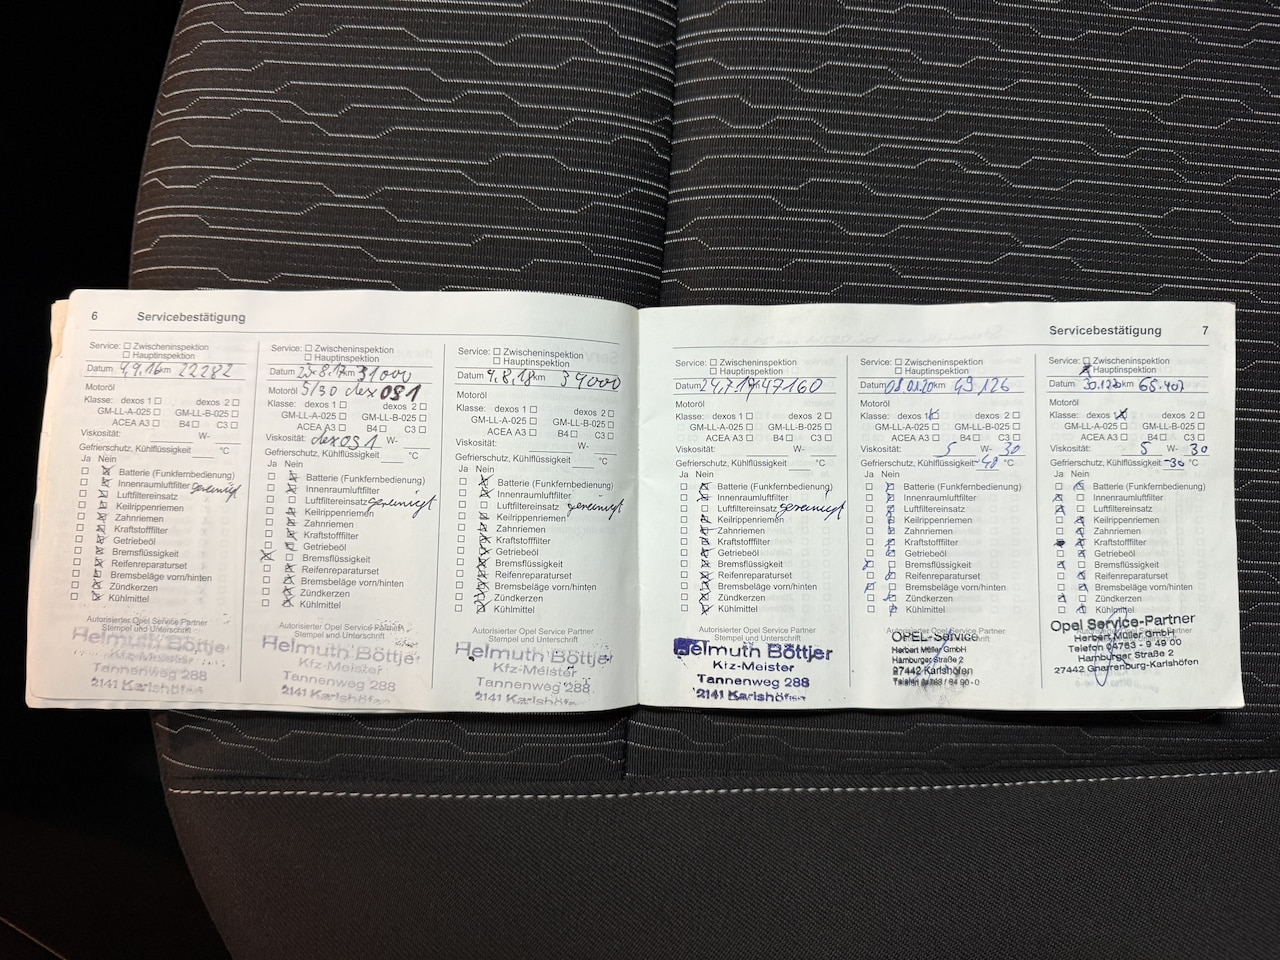 6 Servicebestätigung
Service: ☐ Zwischeninspektion
☐ Hauptinspektion
Datum 9,9,16 km 22282
Motoröl
Klasse: dexos 1 ☐ dexos 2 ☐
GM-LL-A-025 ☐ GM-LL-B-025 ☐
ACEA A3 ☐ B4 ☐ C3 ☐
Viskosität: W-
Gefrierschutz, Kühlflüssigkeit °C
Ja Nein
Batterie (Funkfernbedienung)
Innenraumluftfilter
Luftfiltereinsatz gereinigt
Keilrippenriemen
Zahnriemen
Kraftstofffilter
Getriebeöl
Bremsflüssigkeit
Reifenreparaturset
Bremsbeläge vorn/hinten
Zündkerzen
Kühlmittel
Autorisierter Opel Service Partner
Stempel und Unterschrift
Helmuth Böttjer
Kfz-Meister
Tannenweg 288
2141 Karlshöfen
Service: ☐ Zwischeninspektion
☐ Hauptinspektion
Datum 23.8.17 km 31000
Motoröl 5/30 dexos1
Klasse: dexos 1 ☐ dexos 2 ☐
GM-LL-A-025 ☐ GM-LL-B-025 ☐
ACEA A3 ☐ B4 ☐ C3 ☐
Viskosität: dexos1 W-
Gefrierschutz, Kühlflüssigkeit °C
Ja Nein
Batterie (Funkfernbedienung)
Innenraumluftfilter
Luftfiltereinsatz gereinigt
Keilrippenriemen
Zahnriemen
Kraftstofffilter
Getriebeöl
Bremsflüssigkeit
Reifenreparaturset
Bremsbeläge vorn/hinten
Zündkerzen
Kühlmittel
Autorisierter Opel Service Partner
Stempel und Unterschrift
Helmuth Böttjer
Kfz-Meister
Tannenweg 288
2141 Karlshöfen
Service: ☐ Zwischeninspektion
☐ Hauptinspektion
Datum 9,8,18 km 39000
Motoröl
Klasse: dexos 1 ☐ dexos 2 ☐
GM-LL-A-025 ☐ GM-LL-B-025 ☐
ACEA A3 ☐ B4 ☐ C3 ☐
Viskosität: W-
Gefrierschutz, Kühlflüssigkeit °C
Ja Nein
Batterie (Funkfernbedienung)
Innenraumluftfilter
Luftfiltereinsatz gereinigt
Keilrippenriemen
Zahnriemen
Kraftstofffilter
Getriebeöl
Bremsflüssigkeit
Reifenreparaturset
Bremsbeläge vorn/hinten
Zündkerzen
Kühlmittel
Autorisierter Opel Service Partner
Stempel und Unterschrift
Helmuth Böttjer
Kfz-Meister
Tannenweg 288
2141 Karlshöfen
Servicebestätigung 7
Service: ☐ Zwischeninspektion
☐ Hauptinspektion
Datum 24,7,19 km 47160
Motoröl
Klasse: dexos 1 ☐ dexos 2 ☐
GM-LL-A-025 ☐ GM-LL-B-025 ☐
ACEA A3 ☐ B4 ☐ C3 ☐
Viskosität: W-
Gefrierschutz, Kühlflüssigkeit °C
Ja Nein
Batterie (Funkfernbedienung)
Innenraumluftfilter
Luftfiltereinsatz gereinigt
Keilrippenriemen
Zahnriemen
Kraftstofffilter
Getriebeöl
Bremsflüssigkeit
Reifenreparaturset
Bremsbeläge vorn/hinten
Zündkerzen
Kühlmittel
Autorisierter Opel Service Partner
Stempel und Unterschrift
Helmuth Böttjer
Kfz-Meister
Tannenweg 288
2141 Karlshöfen
Service: ☐ Zwischeninspektion
☐ Hauptinspektion
Datum 08.01.20 km 49126
Motoröl
Klasse: dexos 1 ☒ dexos 2 ☐
GM-LL-A-025 ☐ GM-LL-B-025 ☐
ACEA A3 ☐ B4 ☐ C3 ☐
Viskosität: 5 W- 30
Gefrierschutz, Kühlflüssigkeit -40 °C
Ja Nein
Batterie (Funkfernbedienung)
Innenraumluftfilter
Luftfiltereinsatz
Keilrippenriemen
Zahnriemen
Kraftstofffilter
Getriebeöl
Bremsflüssigkeit
Reifenreparaturset
Bremsbeläge vorn/hinten
Zündkerzen
Kühlmittel
Autorisierter Opel Service Partner
OPEL-Service
Herbert Müller GmbH
Hamburger Straße 2
27442 Karlshöfen
Telefon 04763 / 94 90-0
Service: ☐ Zwischeninspektion
☒ Hauptinspektion
Datum 30.12.20 km 65.407
Motoröl
Klasse: dexos 1 ☒ dexos 2 ☐
GM-LL-A-025 ☐ GM-LL-B-025 ☐
ACEA A3 ☐ B4 ☐ C3 ☐
Viskosität: 5 W- 30
Gefrierschutz, Kühlflüssigkeit -30 °C
Ja Nein
Batterie (Funkfernbedienung)
Innenraumluftfilter
Luftfiltereinsatz
Keilrippenriemen
Zahnriemen
Kraftstofffilter
Getriebeöl
Bremsflüssigkeit
Reifenreparaturset
Bremsbeläge vorn/hinten
Zündkerzen
Kühlmittel
Opel Service-Partner
Herbert Müller GmbH
Telefon 04763 - 9 49 00
Hamburger Straße 2
27442 Gnarrenburg-Karlshöfen